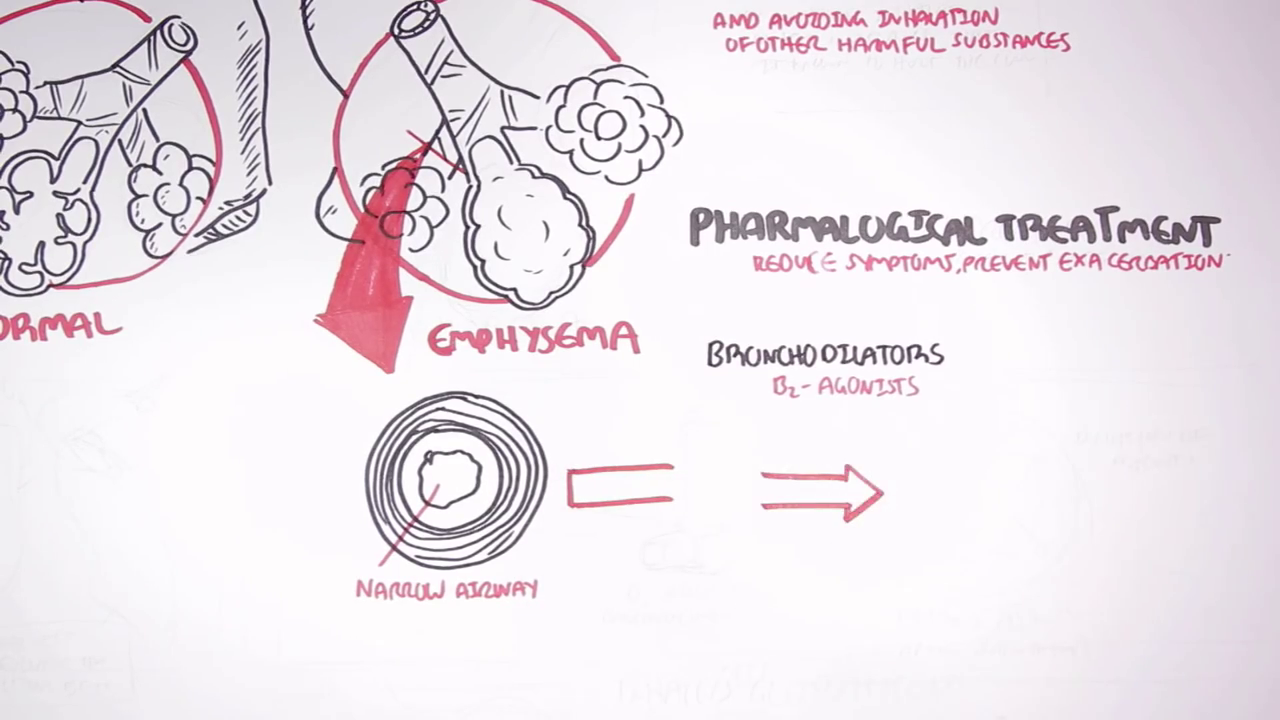 AND AVOIDING INHALATION
OF OTHER HARMFUL SUBSTANCES
PHARMALOGICAL TREATMENT
REDUCE SYMPTOMS, PREVENT EXACERBATION
ORMAL
EMPHYSEMA
BRONCHODILATORS
B2-AGONISTS
NARROW AIRWAY